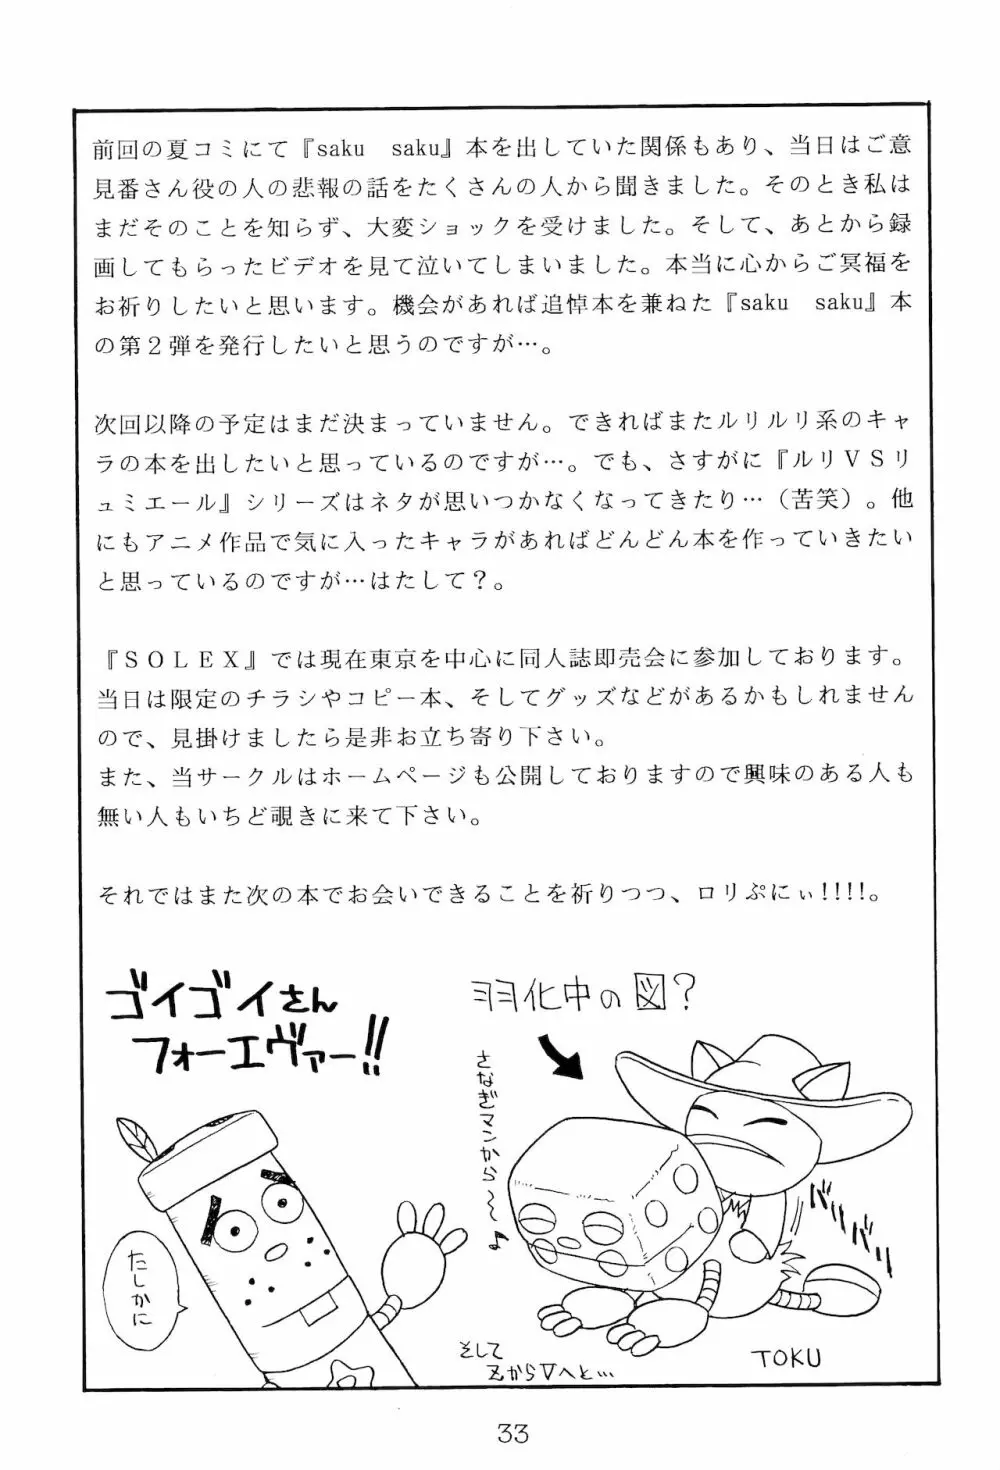 前回の夏コミにて『saku　saku』本を出していた関係もあり、当日はご意
見番さん役の人の悲報の話をたくさんの人から聞きました。そのとき私は
まだそのことを知らず、大変ショックを受けました。そして、あとから録
画してもらったビデオを見て泣いてしまいました。本当に心からご冥福を
お祈りしたいと思います。機会があれば追悼本を兼ねた『saku　saku』本
の第２弾を発行したいと思うのですが…。
次回以降の予定はまだ決まっていません。できればまたルリルリ系のキャ
ラの本を出したいと思っているのですが…。でも、さすがに『ルリＶＳリ
ュミエール』シリーズはネタが思いつかなくなってきたり…（苦笑）。他
にもアニメ作品で気に入ったキャラがあればどんどん本を作っていきたい
と思っているのですが…はたして？。
『ＳＯＬＥＸ』では現在東京を中心に同人誌即売会に参加しております。
当日は限定のチラシやコピー本、そしてグッズなどがあるかもしれません
ので、見掛けましたら是非お立ち寄り下さい。
また、当サークルはホームページも公開しておりますので興味のある人も
無い人もいちど覗きに来て下さい。
それではまた次の本でお会いできることを祈りつつ、ロリぷにぃ!!!!。
ゴイゴイさん
フォーエヴァー!!
羽化中の図？
さなぎマンから〜〜
たしかに
そして
Zから▽へと…
TOKU
33